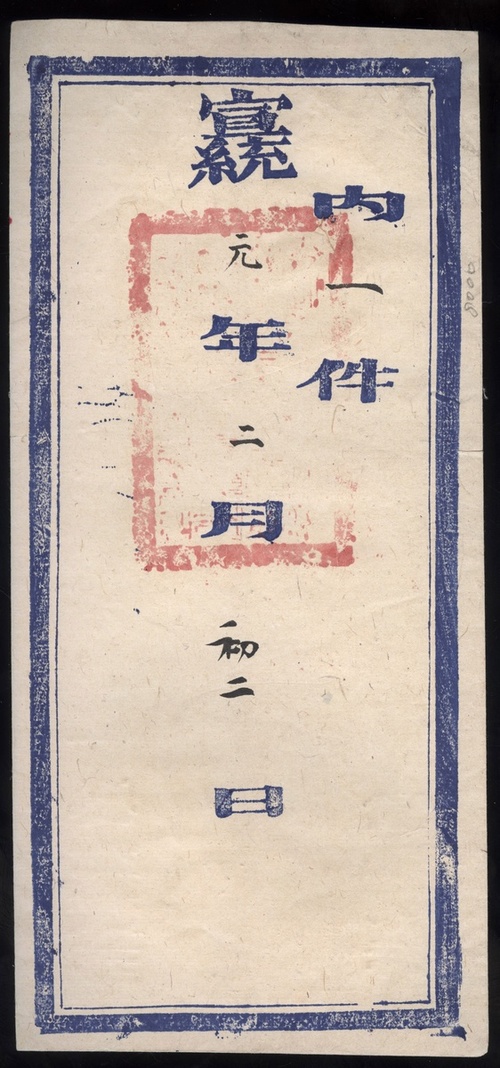 內一件
宣統元年二月初二日
8000